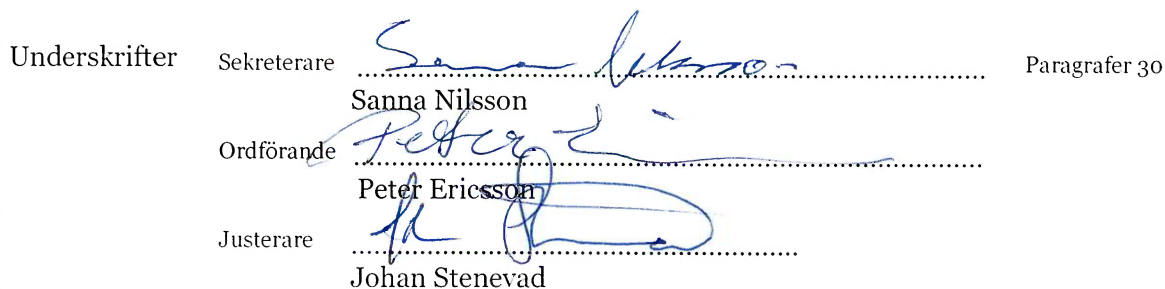 Underskrifter Sekreterare Sanna Nilsson Paragrafer 30
Sanna Nilsson
Ordförande Peter E
Peter Ericsson
Justerare
Johan Stenevad